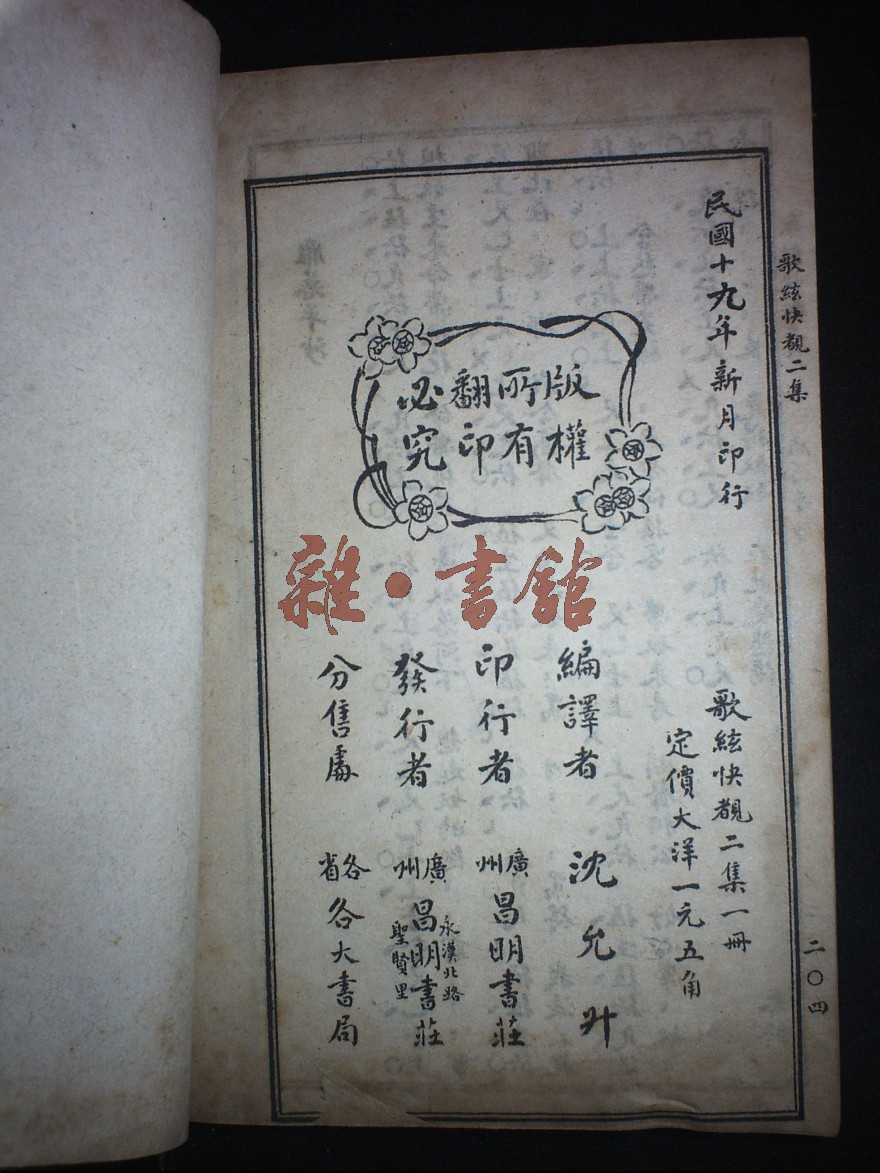 歌絃快覩二集
二〇四
民國十九年新月印行
歌絃快覩二集一冊
定價大洋一元五角
版權
所有
翻印
必究
雜·書館
編譯者 沈允升
印行者 廣州昌明書莊
發行者 廣州昌明書莊
永漢北路
聖賢里
分售處 各省各大書局